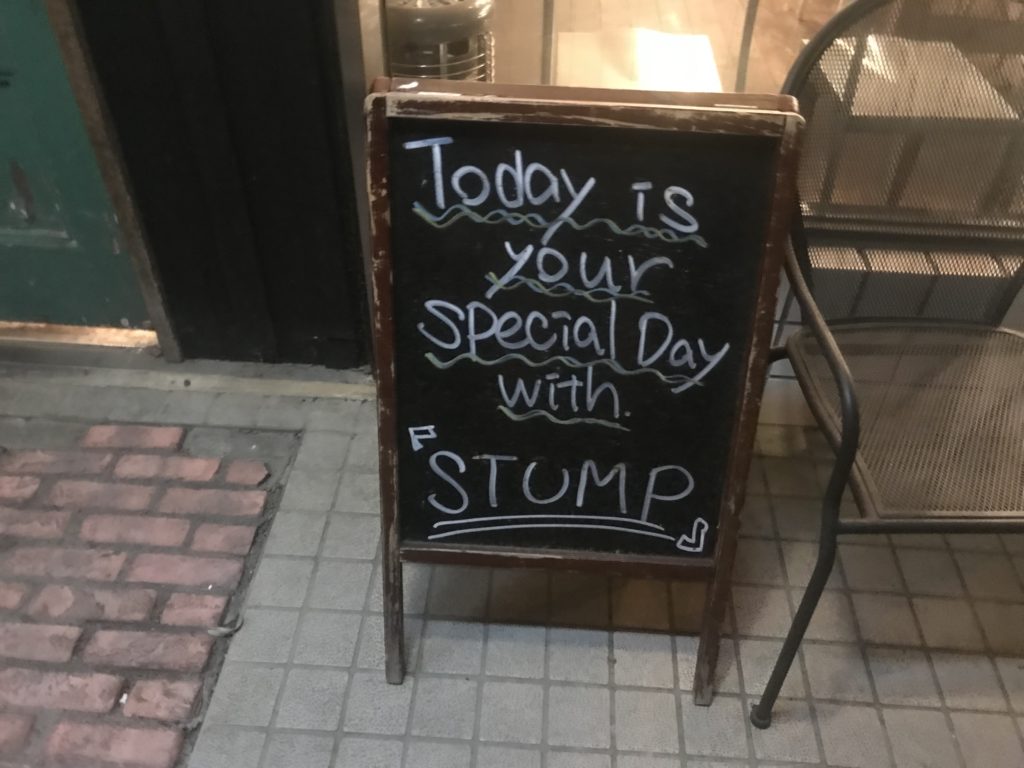 Today is
your
Special Day
with.
『STUMP』